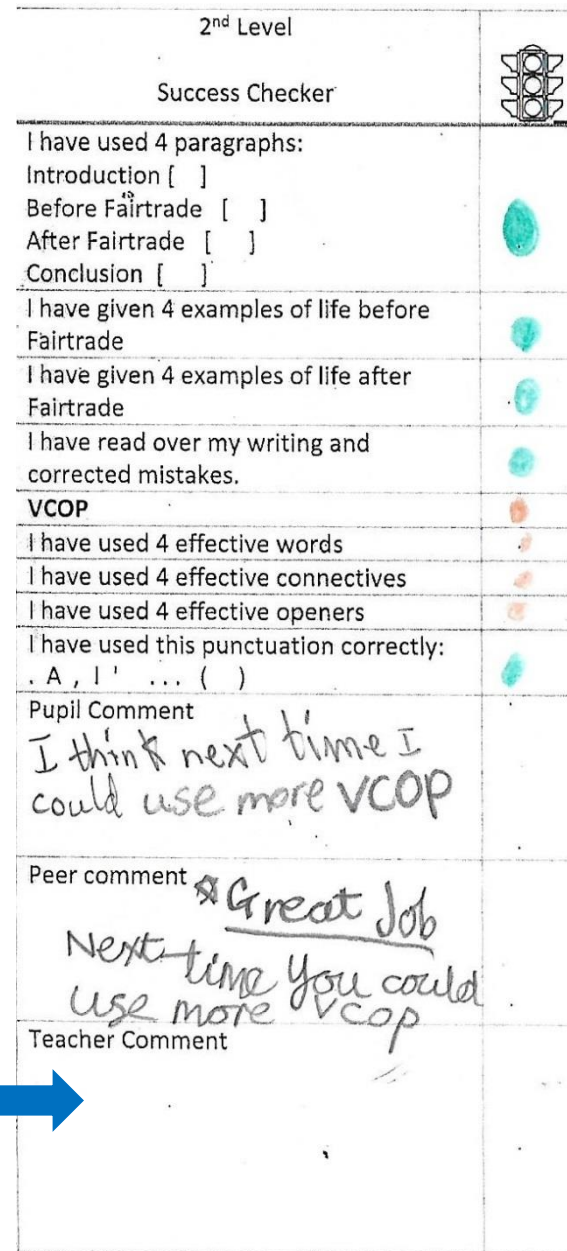 2nd Level
Success Checker
I have used 4 paragraphs:
Introduction [ ]
Before Fairtrade [ ]
After Fairtrade [ ]
Conclusion [ ]
I have given 4 examples of life before
Fairtrade
I have given 4 examples of life after
Fairtrade
I have read over my writing and
corrected mistakes.
VCOP
I have used 4 effective words
I have used 4 effective connectives
I have used 4 effective openers
I have used this punctuation correctly:
. A , ! ' ... ( )
Pupil Comment
I think next time I
could use more VCOP
Peer comment
Great Job
Next time you could
use more VCOP
Teacher Comment